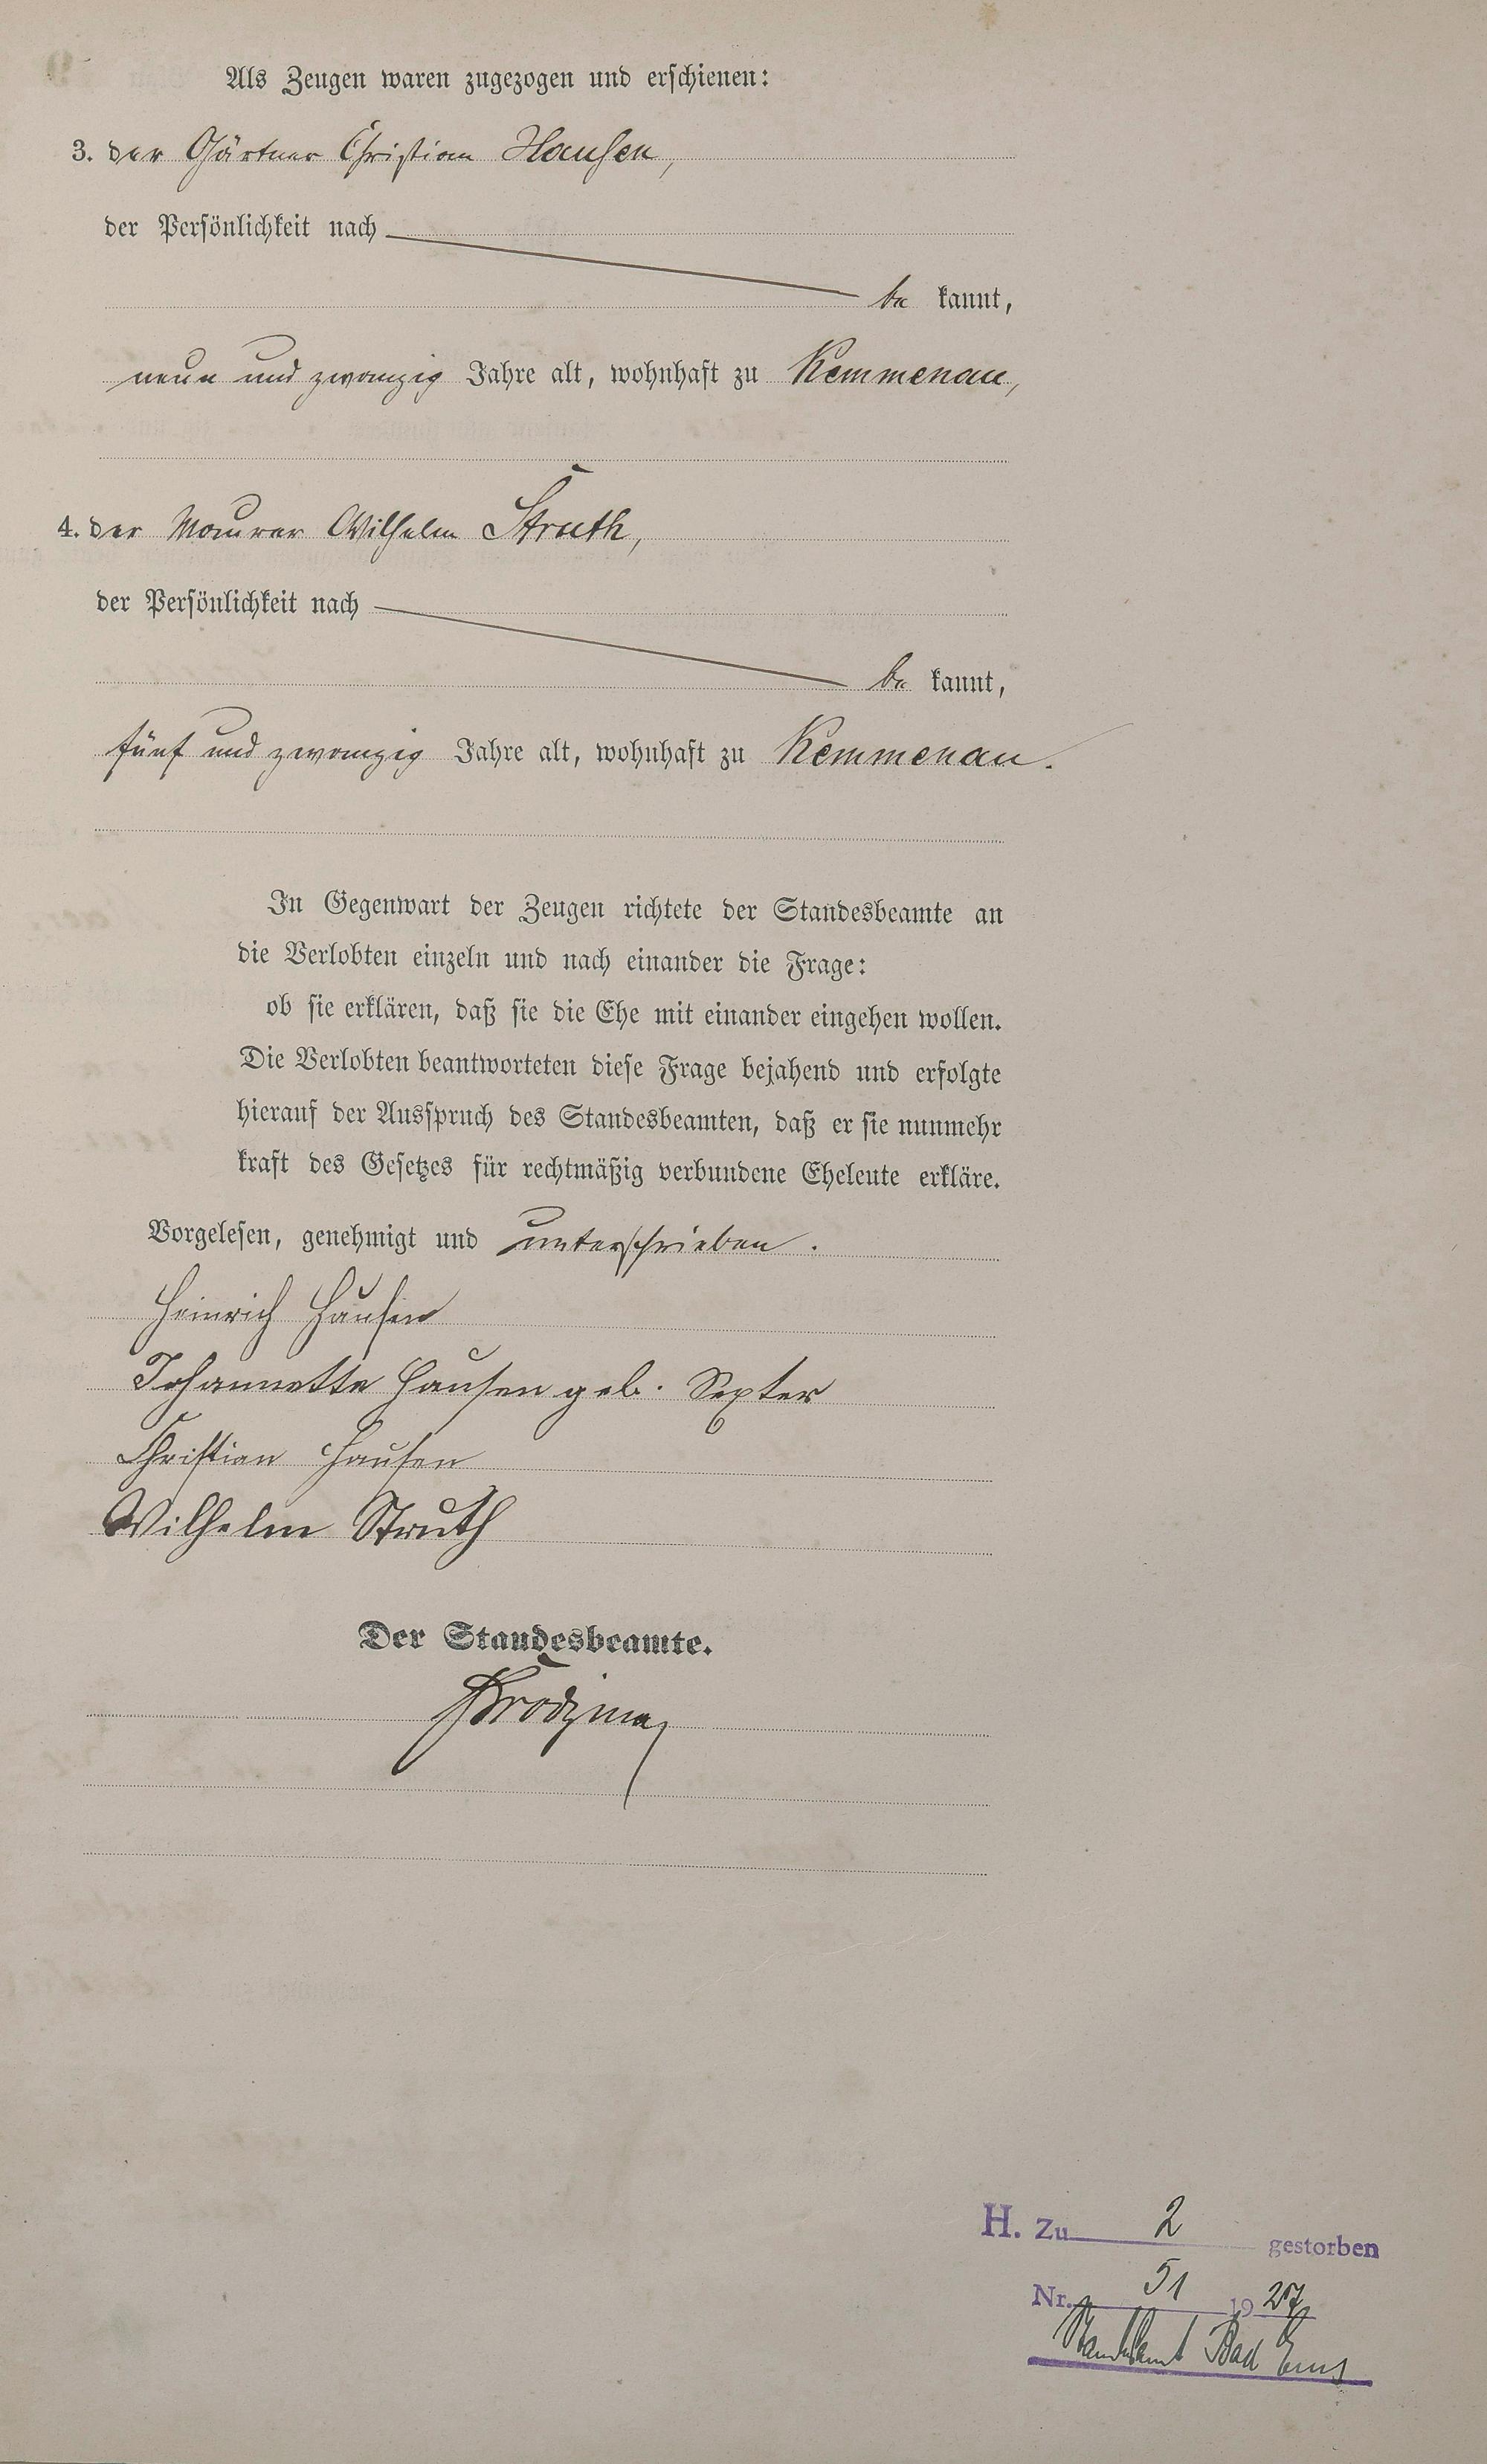 Als Zeugen waren zugezogen und erschienen:
3. der Gärtner Christian Hausen,
der Persönlichkeit nach
be kannt,
neun und zwanzig Jahre alt, wohnhaft zu Kemmenau,
4. der Maurer Wilhelm Struth,
der Persönlichkeit nach
be kannt,
fünf und zwanzig Jahre alt, wohnhaft zu Kemmenau.
In Gegenwart der Zeugen richtete der Standesbeamte an
die Verlobten einzeln und nach einander die Frage:
ob sie erklären, daß sie die Ehe mit einander eingehen wollen.
Die Verlobten beantworteten diese Frage bejahend und erfolgte
hierauf der Ausspruch des Standesbeamten, daß er sie nunmehr
kraft des Gesetzes für rechtmäßig verbundene Eheleute erkläre.
Vorgelesen, genehmigt und unterschrieben.
Heinrich Hausen
Johannette Hausen geb. Septer
Christian Hausen
Wilhelm Struth
Der Standesbeamte.
H. Zu 2 gestorben
Nr. 51 1927
Standesamt Bad Ems